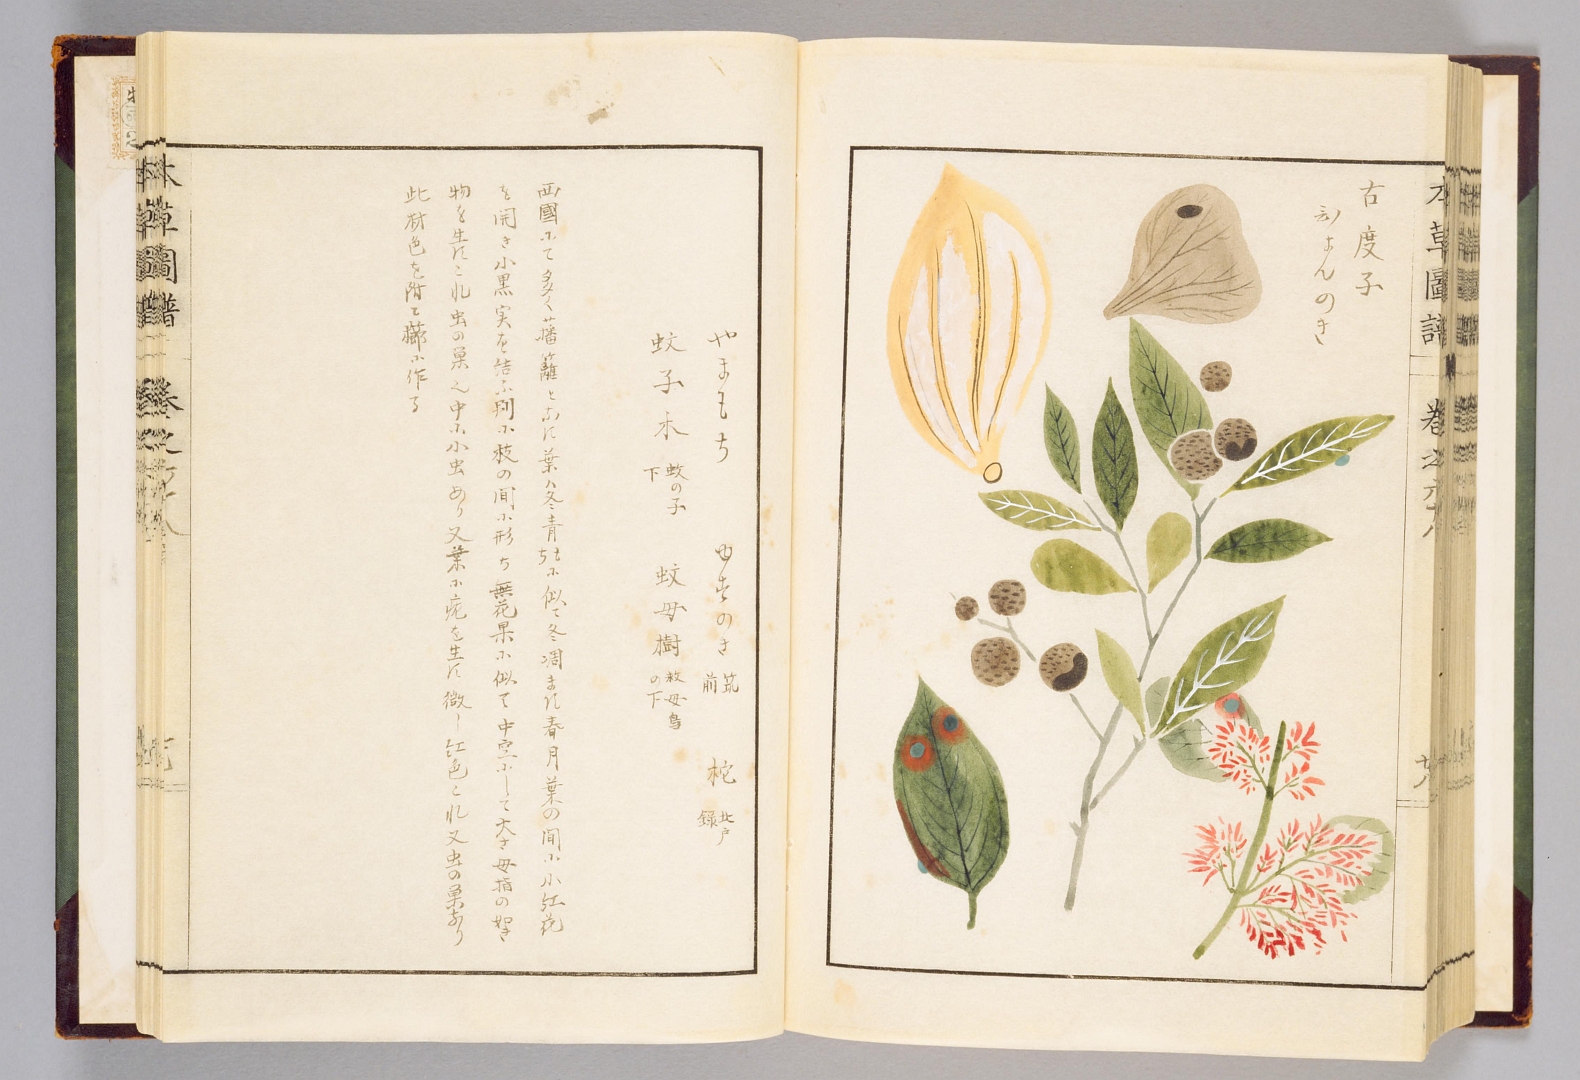 本草圖譜 巻之
古度子
のき
やまもち ゆすのき 筑前 柁 北戸録
蚊子木 蚊の子下 蚊母樹 蚊母鳥の下
西國にて多く藩籬とす葉ハ冬青もちに似て冬凋ます春月葉の間に小紅花
を開き小黒実を結ふ別に枝の間に形ち無花果に似て中空にして大さ母指の如き
物を生すこれ虫の巣之中に小虫あり又葉に疣を生す微し紅色これ又虫の巣なり
此材色を附て櫛に作る
本草圖譜 巻之